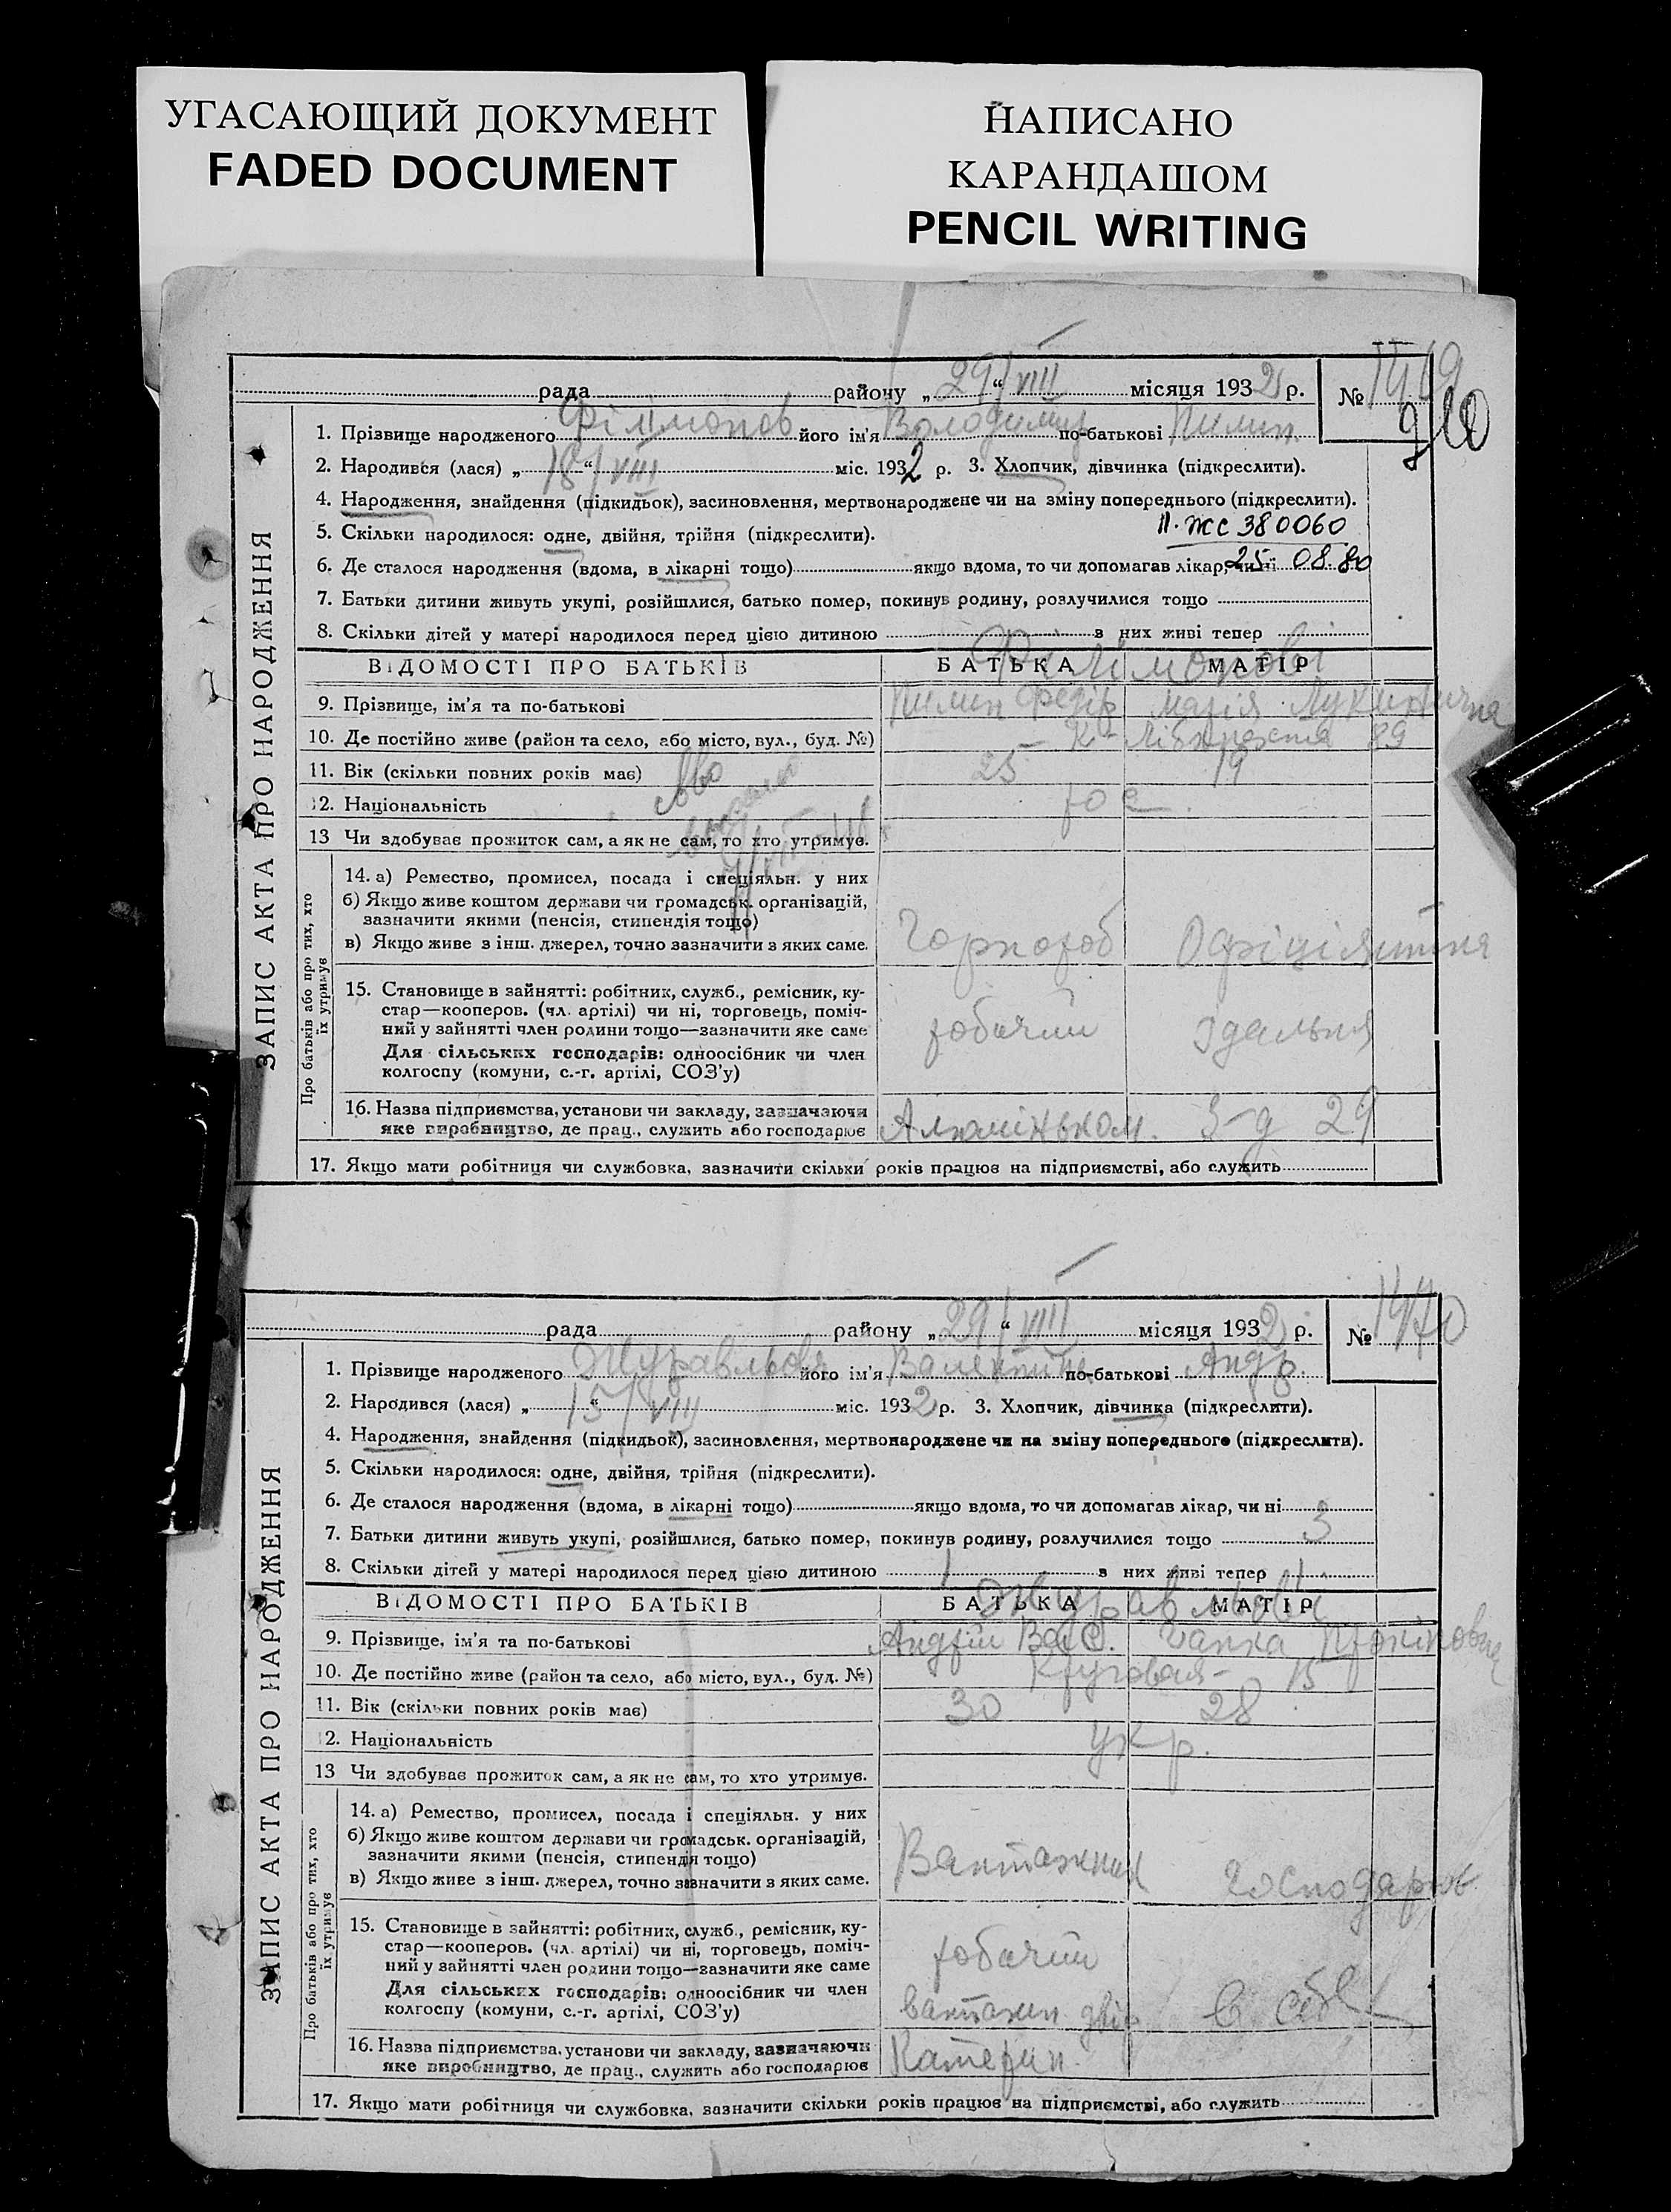 УГАСАЮЩИЙ ДОКУМЕНТ
FADED DOCUMENT
НАПИСАНО
КАРАНДАШОМ
PENCIL WRITING
ЗАПИС АКТА ПРО НАРОДЖЕННЯ
рада району „29/VIII“ місяця 1932 р. № 1469
910
1. Прізвище народженого Філімонов його ім'я Володимир по-батькові Пилип.
2. Народився (лася) „18“/VIII міс. 1932 р. 3. Хлопчик, дівчинка (підкреслити).
4. Народження, знайдення (підкидьок), засиновлення, мертвонароджене чи на зміну попереднього (підкреслити).
5. Скільки народилося: одне, двійня, трійня (підкреслити).
II-ЖС 380060
6. Де сталося народження (вдома, в лікарні тощо) якщо вдома, то чи допомагав лікар, чи ні
25 08.80
7. Батьки дитини живуть укупі, розійшлися, батько помер, покинув родину, розлучилися тощо
8. Скільки дітей у матері народилося перед цією дитиною з них живі тепер
Філімонові
ВІДОМОСТІ ПРО БАТЬКІВ БАТЬКА МАТІР
9. Прізвище, ім'я та по-батькові Пилип Федір Марія Лукинична
10. Де постійно живе (район та село, або місто, вул., буд. №) К-Лібкнехта 89
11. Вік (скільки повних років має) 25 19
12. Національність рос.
13 Чи здобуває прожиток сам, а як не сам, то хто утримує.
Про батьків або про тих, хто їх утримує
14. а) Ремество, промисел, посада і спеціяльн. у них
б) Якщо живе коштом держави чи громадськ. організацій,
зазначити якими (пенсія, стипендія тощо)
в) Якщо живе з інш. джерел, точно зазначити з яких саме. Чорнороб Офіціянтка
15. Становище в зайнятті: робітник, служб., ремісник, ку-
стар—кооперов. (чл. артілі) чи ні, торговець, поміч-
ний у зайнятті член родини тощо—зазначити яке саме робочий їдальня
Для сільських господарів: одноосібник чи член
колгоспу (комуни, с.-г. артілі, СОЗ'у)
16. Назва підприємства, установи чи закладу, зазначаючи
яке виробництво, де прац., служить або господарює Алюміньком. З-д 29
17. Якщо мати робітниця чи службовка, зазначити скільки років працює на підприємстві, або служить
ЗАПИС АКТА ПРО НАРОДЖЕННЯ
рада району „29/VIII“ місяця 1932 р. № 1470
1. Прізвище народженого Журавльова його ім'я Валентина по-батькові Андр.
2. Народився (лася) „15“/VIII міс. 1932 р. 3. Хлопчик, дівчинка (підкреслити).
4. Народження, знайдення (підкидьок), засиновлення, мертвонароджене чи на зміну попереднього (підкреслити).
5. Скільки народилося: одне, двійня, трійня (підкреслити).
6. Де сталося народження (вдома, в лікарні тощо) якщо вдома, то чи допомагав лікар, чи ні
7. Батьки дитини живуть укупі, розійшлися, батько помер, покинув родину, розлучилися тощо 3
8. Скільки дітей у матері народилося перед цією дитиною 1 з них живі тепер 1
Журавльови
ВІДОМОСТІ ПРО БАТЬКІВ БАТЬКА МАТІР
9. Прізвище, ім'я та по-батькові Андрій Вас. Ганна
10. Де постійно живе (район та село, або місто, вул., буд. №) Круговая - 15
11. Вік (скільки повних років має) 30 28
12. Національність укр.
13 Чи здобуває прожиток сам, а як не сам, то хто утримує.
Про батьків або про тих, хто їх утримує
14. а) Ремество, промисел, посада і спеціяльн. у них
б) Якщо живе коштом держави чи громадськ. організацій,
зазначити якими (пенсія, стипендія тощо)
в) Якщо живе з інш. джерел, точно зазначити з яких саме. Вантажник Господарює
15. Становище в зайнятті: робітник, служб., ремісник, ку-
стар—кооперов. (чл. артілі) чи ні, торговець, поміч-
ний у зайнятті член родини тощо—зазначити яке саме робочий
Для сільських господарів: одноосібник чи член
колгоспу (комуни, с.-г. артілі, СОЗ'у) вантажн. двір в себе
16. Назва підприємства, установи чи закладу, зазначаючи
яке виробництво, де прац., служить або господарює Катерин.
17. Якщо мати робітниця чи службовка, зазначити скільки років працює на підприємстві, або служить